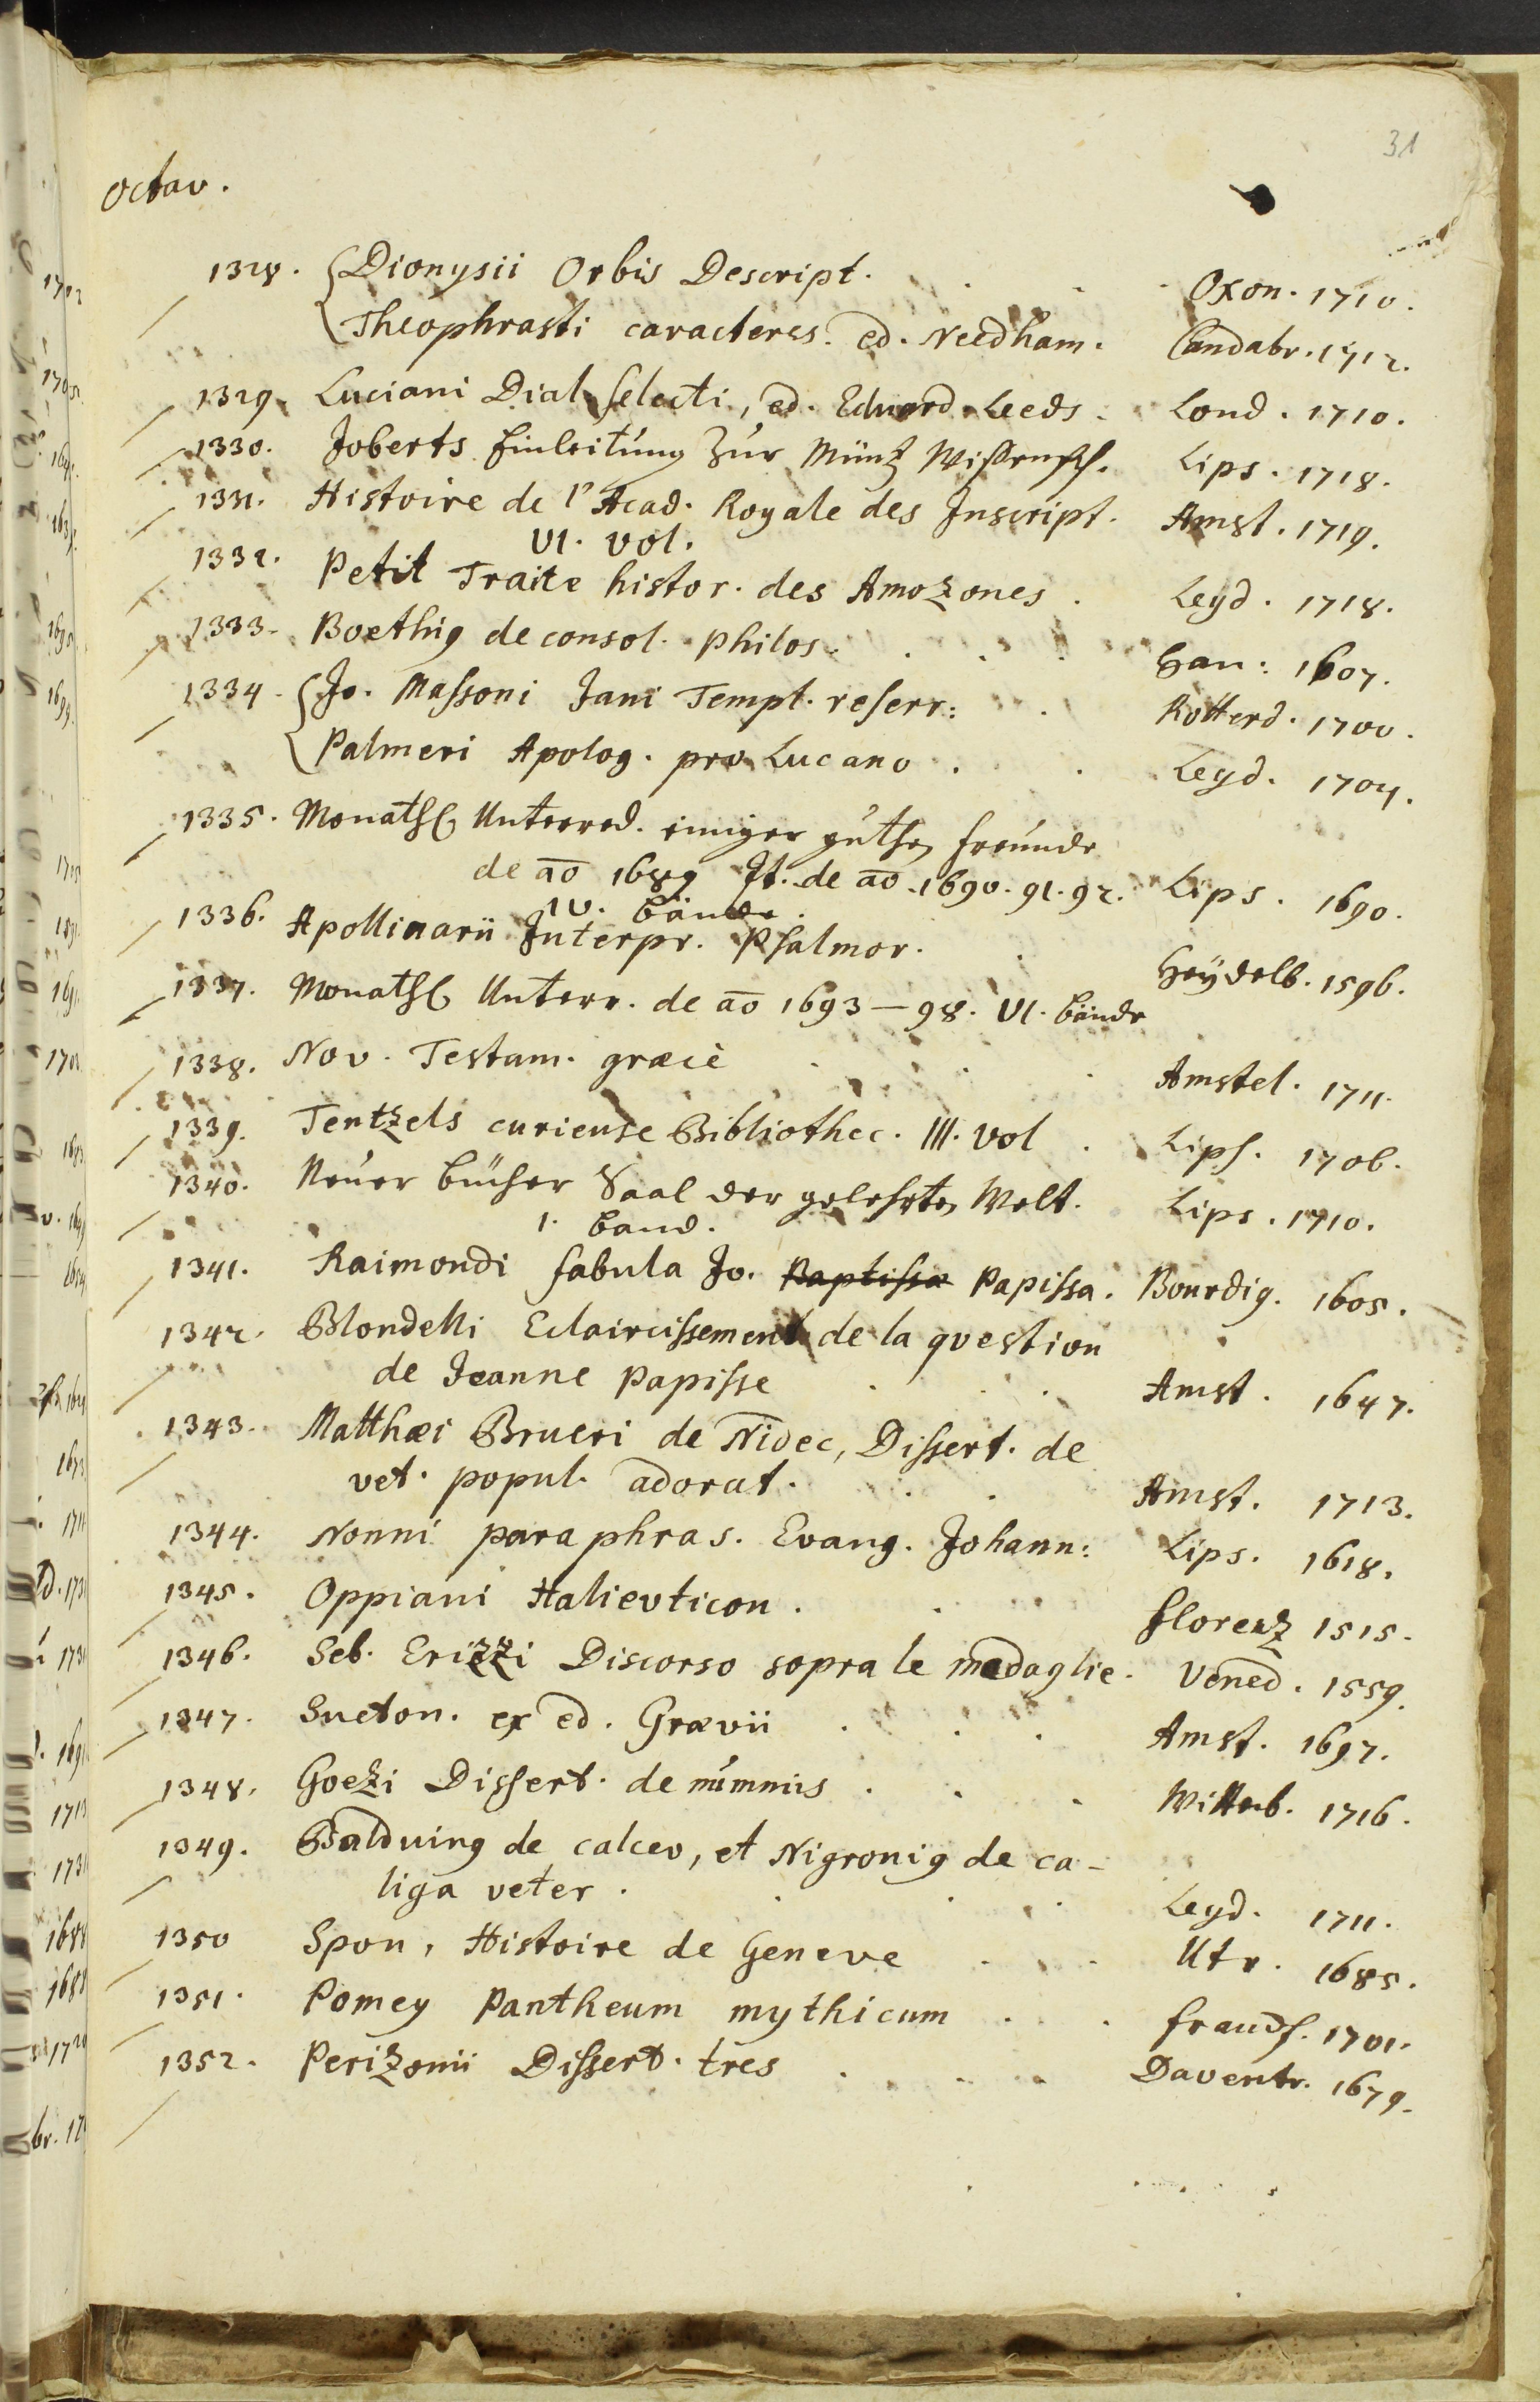 31
Octav.
1328. Dionysii Orbis Descript. Oxon. 1710.
Theophrasti caracteres. ed. Needham. Candabr. 1712.
1329. Luciani Dial. selecti, ed. Eduard Leeds. Lond. 1710.
1330. Joberts Einleitung zur Müntz Wissensch. Lips. 1718.
1331. Histoire de l'Acad. Royale des Inscript. Amst. 1719.
VI. vol.
1332. Petit Traite histor. des Amozones. Leyd. 1718.
1333. Boethig de consol. philos. Han: 1607.
1334. Jo. Massoni Jani Templ. reserr: Rotterd. 1700.
Palmeri Apolog. pro Lucano. Leyd. 1704.
1335. Monathl. Unterred. einiger guthen freunde
de ao 1689 It. de ao. 1690. 91. 92. Lips. 1690.
IV. Bände.
1336. Apollinarii Interpr. Psalmor. Heydelb. 1596.
1337. Monathl. Unterr. de ao 1693–98. VI. Bände
1338. Nov. Testam. græcè Amstel. 1711.
1339. Tentzels curieuse Bibliothec. III. vol. Lips. 1706.
1340. Neuer Bücher Saal der gelehrten Welt. Lips. 1710.
1. Band.
1341. Raimondi fabula Jo. Baptissæ Papissa. Bourdig. 1605.
1342. Blondelli Eclaircissement de la qvestion
de Jeanne Papisse Amst. 1647.
1343. Matthæi Brueri de Nidec, Dissert. de
vet. popul. adorat. Amst. 1713.
1344. Nonni paraphras. Evang. Johann: Lips. 1618.
1345. Oppiani Halievticon. Florenz 1515.
1346. Seb. Erizzi Discorso sopra le medaglie. Vened. 1559.
1347. Sueton. ex ed. Grævii Amst. 1697.
1348. Goezi Dissert. de nummis. Wittenb. 1716.
1349. Balduing de calceo, et Nigronig de ca-
liga veter. Leyd. 1711.
1350 Spon, Histoire de Geneve Utr. 1685.
1351. Pomey Pantheum mythicum Francf. 1701.
1352. Perizonii Dissert. tres Daventr. 1679.